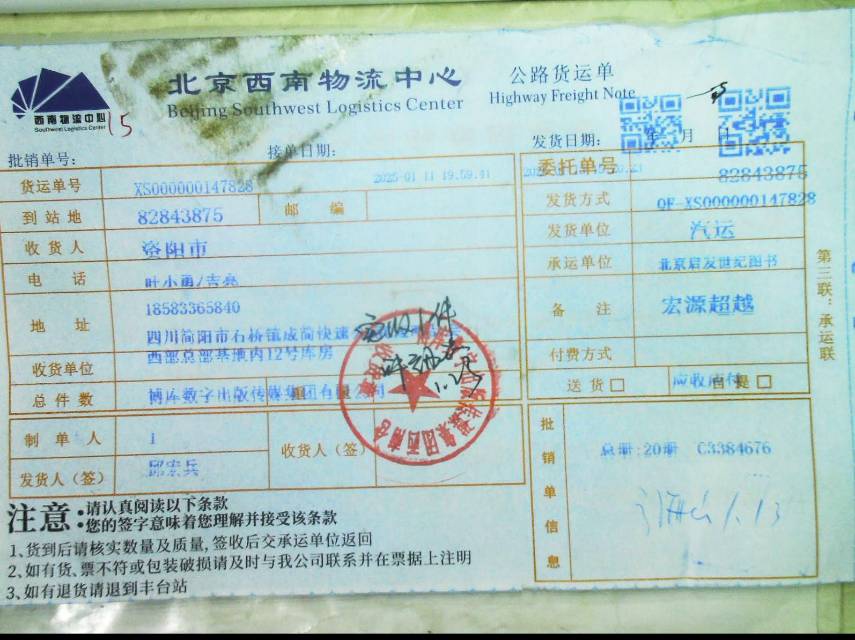 北京西南物流中心
公路货运单
Beijing Southwest Logistics Center
Highway Freight Note
西南物流中心
Southwest Logistics Center
15
批销单号:
接单日期:
发货日期: 年 月 日
2025-01-11 19:59:41
货运单号 XS000000147828
委托单号 82843875
到站地 82843875 邮编
发货方式 QF-XS000000147828
收货人 资阳市
发货单位 汽运
电话 叶小勇/吉亮
承运单位 北京启发世纪图书
地址 18583365840
四川简阳市石桥镇成简快速
西部总部基地内12号库房
备注 宏源超越
收货单位
付费方式
总件数 博库数字出版传媒集团有限公司
送货□ 自提□
应收应付
实收1件
制单人 1
收货人(签)
发货人(签) 邱宏兵
批销单信息
总册:20册 C3384676
1.13
第三联:承运联
注意:请认真阅读以下条款
您的签字意味着您理解并接受该条款
1、货到后请核实数量及质量,签收后交承运单位返回
2、如有货、票不符或包装破损请及时与我公司联系并在票据上注明
3、如有退货请退到丰台站